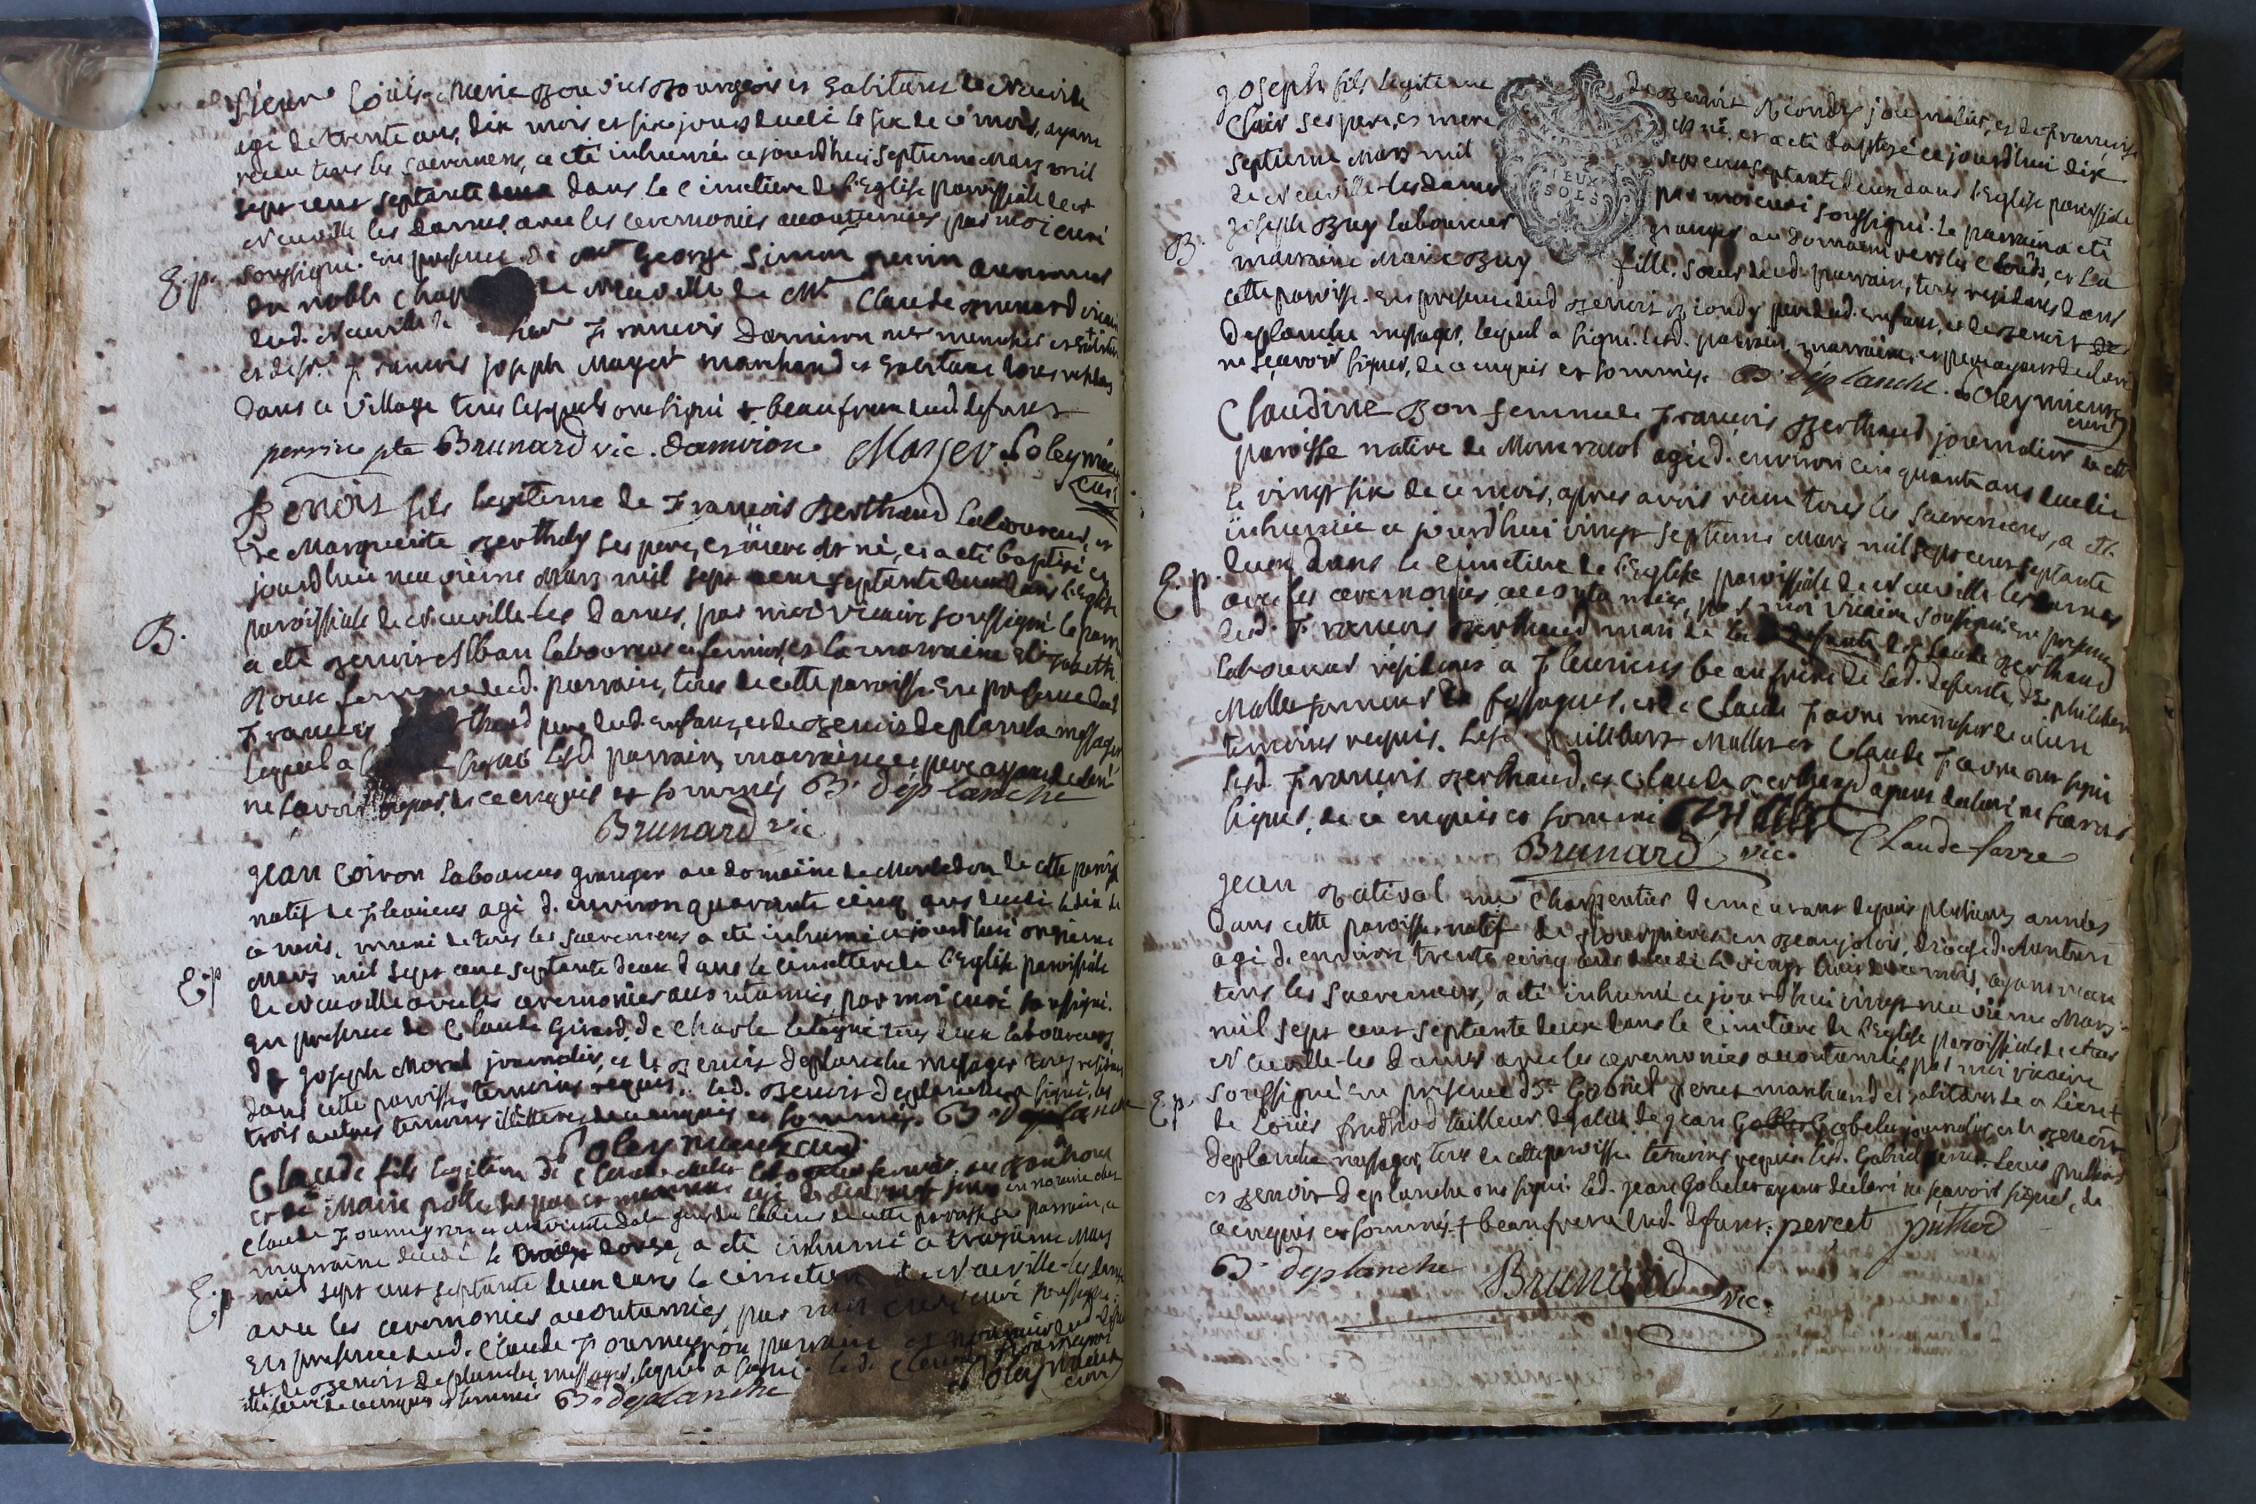 Sieur Louis Marie Bouvier Bourgeois et habitant de Neuville
agé de trente ans, dix mois et six jours decedé le six de ce mois, ayant
recu tous les sacremens, a eté inhumé ce jourdhui septieme Mars mil
sept cent septante deux dans le Cimetiere de l'Eglise paroissiale de
Neuville les Dames avec les ceremonies accoutumées par moi curé
E.p. soussigné. En presence de Mre George Simon perrin aumonier
du noble Chap de Neuville de Mre Claude Brunard vicaire
dud. Neuville Francois Damiron
et de Sr. Francois Joseph Mayer marchand et habitant tous
dans ce village tous lesquels ont signé + beaufrere dud. defunt
perrin ptre Brunard vic. Damiron Mayer Soleymieux
curé
Benoit fils legitime de Francois Berthaud Laboureur, et
de Marguerite Berthely ses pere, et mere est né, et a eté baptisé ce
jourdhui neuvieme Mars mil sept cent septante deux dans l'Eglise
paroissiale de Neuville-les Dames, par moi vicaire soussigné le parrain
B. a eté Benoit Alban laboureur et fermier, et la marraine Elizabeth
Roux femme dud. parrain, tous de cette paroisse. En presence dud.
Francois thaud pere dud. enfant, et de Benoit Deplanche messager
lequel a signé Lesd. parrain, marraine et pere ayant declaré
ne savoir signer, de ce enquis et sommés B. déplanche
Brunard vic
Jean Coiron Laboureur granger au domaine de Montedon de cette paroisse
natif de Fleurieux agé d'environ quarante cinq ans decedé le dix de
ce mois, muni de tous les sacremens a eté inhumé ce jourdhui onzieme
E.p Mars mil sept cent septante deux dans le cimetiere de l'Eglise paroissiale
de Neuville avec les ceremonies accoutumées, par moi curé soussigné.
En presence de Claude Girard, de Charle tous deux laboureurs,
de Joseph Morel journalier, et de Benoit Deplanche messager tous residant
dans cette paroisse temoins requis. led. Benoit Deplanche a signé, les
trois autres temoins illitterés de ce enquis et sommés. B. deplanche
Soleymieux curé
Claude fils legitime de Claude
et de Marie ses pere et mere agé de jours en nourice chez
Claude Fournion
marraine decedé le douze, a eté inhumé ce treizieme Mars
E.p mil sept cent septante deux dans le cimetiere de Neuville-les Dames
avec les ceremonies accoutumées par moi curé soussigné.
En presence dud. Claude parrain et nourricier dud. defunt
et de Benoit Deplanche messager, lequel a signé. led. Claude
illitteré de ce enquis et sommé B. deplanche Soleymieux
curé
Joseph fils legitime de Benoit Riondy journalier, et de Francoise
Clair ses pere, et mere est né, et a eté baptisé ce jourdhui dix
septieme Mars mil sept cent septante deux dans l'Eglise paroissiale
de Neuville-les dames par moi curé soussigné. Le parrain a eté
B. Joseph Buy laboureur granger au domaine vers les Clouds, et la
marraine Marie Buy fille. soeur dud. parrain, tous residans dans
cette paroisse. En presence dud. Benoit Riondy pere dud. enfant, et de Benoit
Deplanche messager, lequel a signé. lesd. parrain, marraine, et pere ayant declaré
ne sçavoir signer, de ce enquis et sommés. B. déplanche Soleymieux
curé
Claudine Bon femme de Francois Berthaud journalier de cette
paroisse native de Montracol agée d'environ cinquante ans decedée
le vingt six de ce mois, apres avoir recu tous les sacremens, a eté
inhumée ce jourdhui vingt septieme Mars mil sept cent septante
E.p. deux dans le cimetiere de l'Eglise paroissiale de Neuville les Dames
avec les ceremonies accoutumées, par moi vicaire soussigné en presence
dud. Francois Berthaud mari de la defunte de Claude Berthaud
Laboureur résidant à Fleurieux beaufrere de lad. defunte, de philibert
Mallet fermier, et de Claude Favre
temoins requis. Lesd. philibert Mallet et Claude Favre ont signé
lesd. Francois Berthaud, et Claude Berthaud ayant declaré ne savoir
signer, de ce enquis et sommés
Brunard vic. Claude favre
Jean Charpentier demeurant depuis plusieurs années
dans cette paroisse natif de en Beaujolois, Diocese d'Authun
agé d'environ trente cinq ans decedé le vingt huit de ce mois, ayant recu
tous les sacremens, a eté inhumé ce jourd'hui vingt neuvieme Mars
mil sept cent septante deux dans le Cimetiere de l'Eglise paroissiale de
Neuville-les Dames avec les ceremonies accoutumées par moi vicaire
E.p. soussigné. En presence de Sr. Gabriel Perret marchand et habitant de ce lieu +
de Loüis prudhod tailleur d'habit de jean Gobelet journalier, et de Benoit
Deplanche messager, tous de cette paroisse temoins requis. lesd. Gabriel perret. Louis prudhod
et Benoit Deplanche ont signé. Led. jean Gobelet ayant declaré ne sçavoir signer, de
ce enquis et sommé. + beaufrere dud. defunt. perret puthod
B. deplanche Brunard vic.